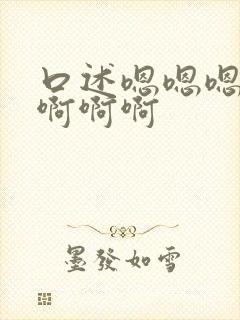 口述嗯嗯嗯
啊啊啊
墨發如雪